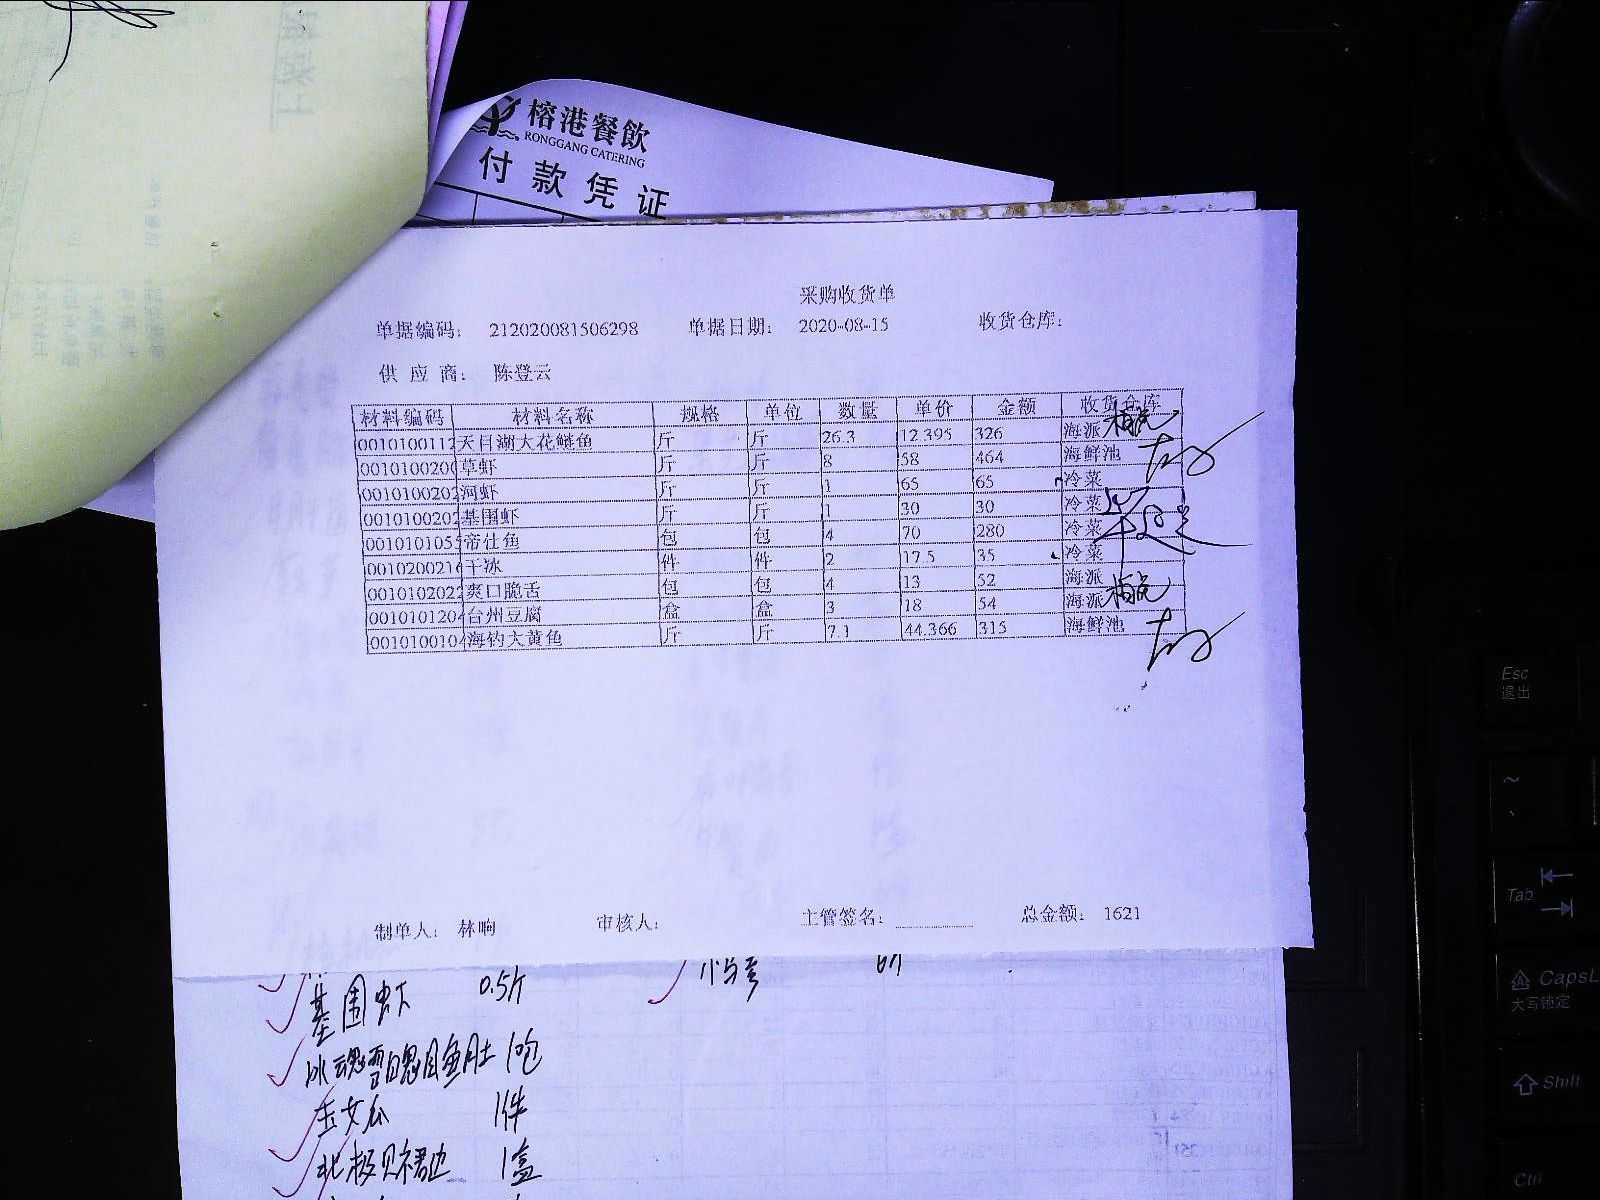 榕港餐飲
RONGGANG CATERING
付款凭证
采购收货单
单据编码： 212020081506298 单据日期： 2020-08-15 收货仓库：
供应商： 陈登云
材料编码 材料名称 规格 单位 数量 单价 金额 收货仓库
0010100112 天目湖大花鲢鱼 斤 斤 26.3 12.395 326 海派
001010020 草虾 斤 斤 8 58 464 海鲜池
001010020 河虾 斤 斤 1 65 65 冷菜
001010020 基围虾 斤 斤 1 30 30 冷菜
001010105 帝仕鱼 包 包 4 70 280 冷菜
001020021 干冰 件 件 2 17.5 35 冷菜
001010202 爽口脆舌 包 包 4 13 52 海派
001010120 台州豆腐 盒 盒 3 18 54 海派
001010010 海钓大黄鱼 斤 斤 7.1 44.366 315 海鲜池
制单人： 林响 审核人： 主管签名： 总金额： 1621
基围虾 0.5斤
1包
玉女瓜 1件
北极贝裙边 1盒
Esc
退出
~
Tab
CapsL
大写锁定
Shift
Ctrl